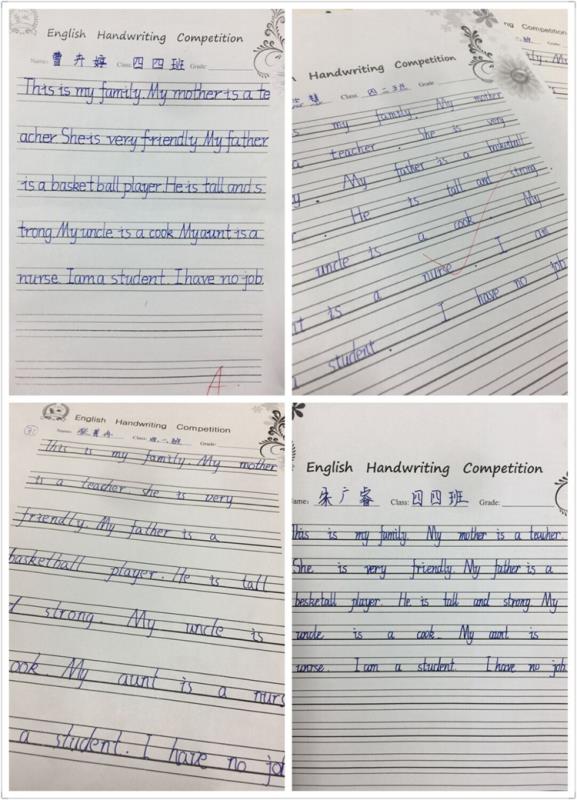 English Handwriting Competition
Name: 曹卉婷 Class: 四四班 Grade:
This is my family. My mother is a te
acher She is very friendly My father
is a basketball player. He is tall and s
trong. My uncle is a cook My aunt is a
nurse. I am a student. I have no job.
A
Handwriting Competition
慧 Class: 四二班 Grade:
s my family. My mother
a teacher. She is very
y. My father is a basketball
r. He is tall and strong.
uncle is a cook. My
nt is a nurse. I am
student. I have no job
ng Competition
班 Grade:
English Handwriting Competition
Name: Class: 四二班 Grade:
This is my family. My mother
is a teacher. she is very
friendly. My father is a
basketball player. He is tall
d strong. My uncle is
ook. My aunt is a nurs
a student. I have no job
English Handwriting Competition
ame: 朱广睿 Class: 四四班 Grade:
This is my family. My mother is a teacher.
She is very friendly. My father is a
besketall player. He is tall and strong. My
uncle is a cook. My aont is
unrse. I am a student. I have no job.